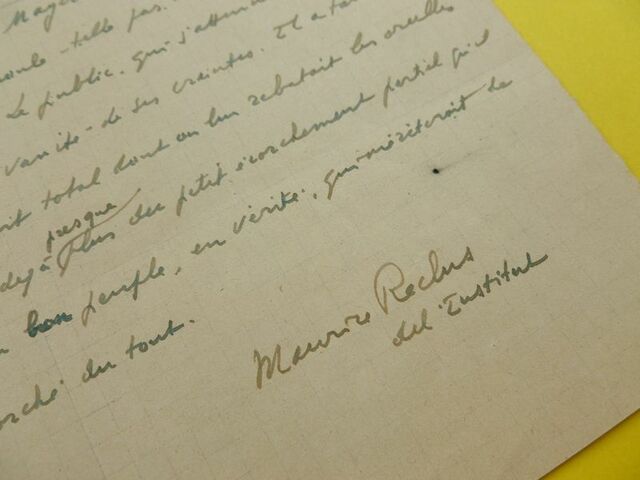 -telle pas.
Le public, qui s'attend
vanité - de ses craintes. Il a
total dont on leur rebattait les oreilles
presque
déjà plus du petit écorchement partiel qu'il
bon peuple, en vérité, qui mériterait de
du tout.
Maurice Reclus
del'Institut